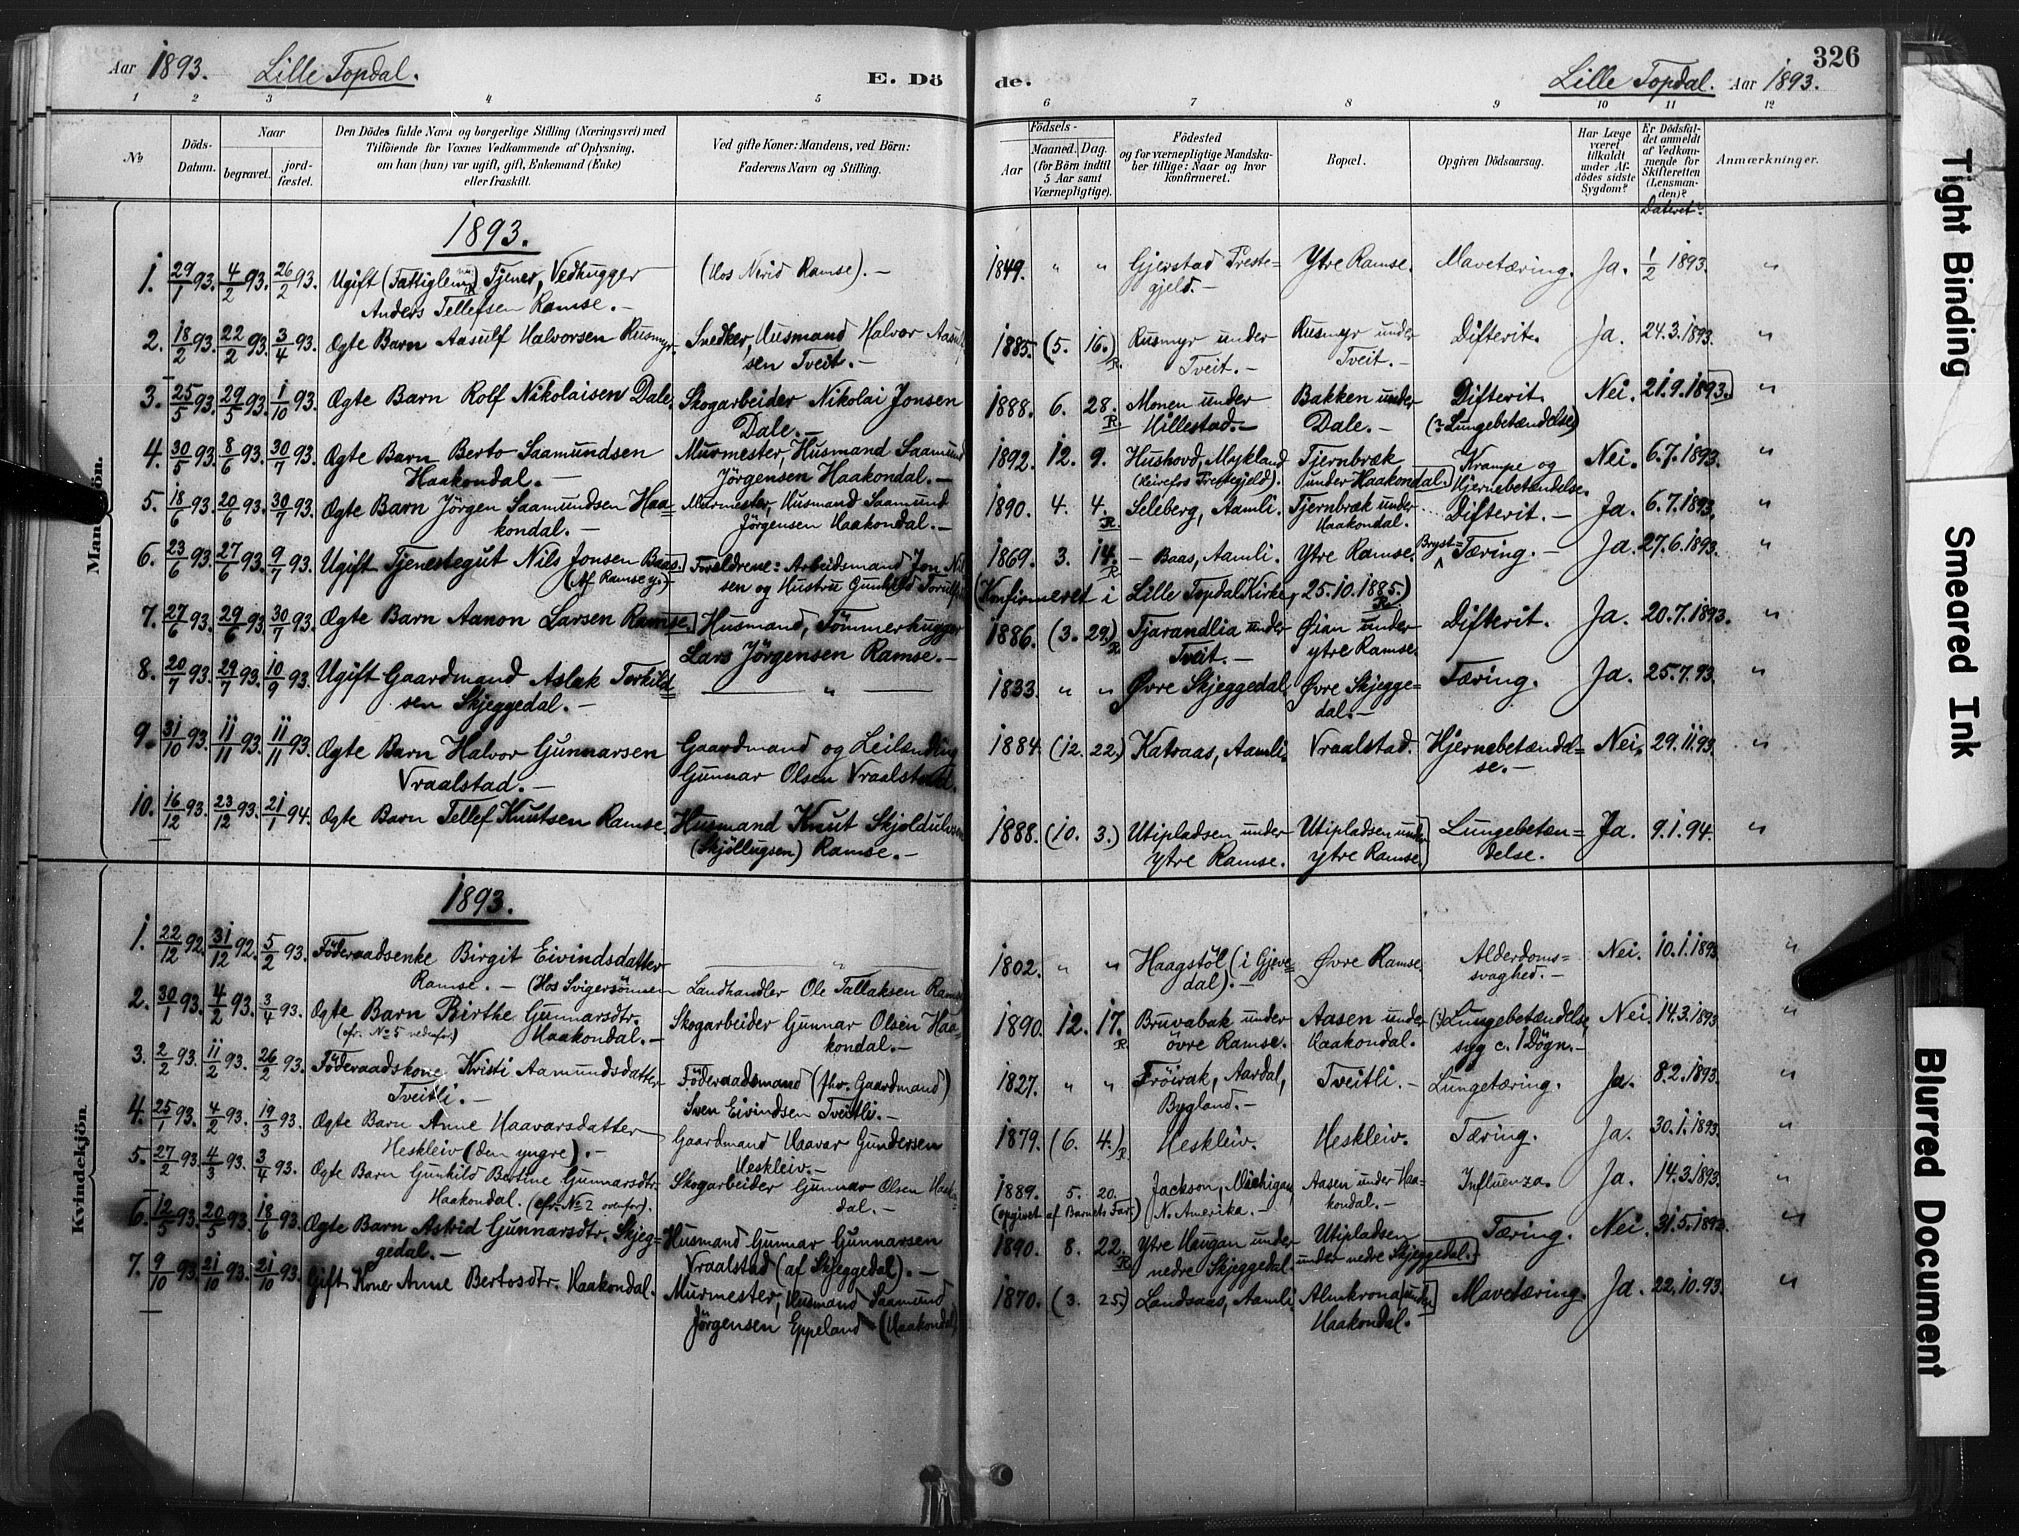 Aar 1893. Lille Topdal. E. Dö
de. Lille Topdal. Aar 1893. 326
1 2 3 4 5
6 7 8 9 10 11 12
No Döds-Datum. Naar begravet. jordfæstet. Den Dödes fulde Navn og borgerlige Stilling (Næringsvei) med
Tilföiende for Voxnes Vedkommende af Oplysning,
om han (hun) var ugift, gift, Enkemand (Enke)
eller fraskilt.
Ved gifte Koner: Mandens, ved Börn:
Faderens Navn og Stilling.
Födsels-
Aar Maaned. Dag.
(for Börn indtil
5 Aar samt
Værnepligtige).
Födested
og for værnepligtige Mandska-
ber tillige: Naar og hvor
konfirmeret.
Bopæl.
Opgiven Dödsaarsag.
Har Læge
været
tilkaldt
under Af-
dödes sidste
Sygdom?
Er Dödsfal-
det anmeldt
af Vedkom-
mende for
Skifteretten
(Lensman-
den)?
Dateret?
Anmærkninger.
Mandkjön.
1893.
1. 29/1 93. 4/2 93. 26/2 93. Ugift (Fattiglem) Tjener, Vedhugger (Hos Nerid Ramse).— 1849. " " Gjerstad Præste- Ytre Ramse. Mavetæring. Ja. 1/2 1893. "
Anders Tellefsen Ramse.— gjeld.—
2. 18/2 93. 22/2 93. 3/4 93. Ægte Barn Aasulf Halvorsen Rusmyr. Snedker, Husmand Halvor 1885. (5. 16.) Rusmyr under Rusmyr under Difterit. Ja. 24.3.1893. "
sen Tveit.— R. Tveit.— Tveit.—
3. 25/5 93. 29/5 93. 1/10 93. Ægte Barn Rolf Nikolaisen Dale. Skogarbeider Nikolai Jonsen 1888. 6. 28. Monen under Bakken under Difterit. Nei. 21.9.1893. "
Dale.— R. Hillestad.— Dale.— (? Lungebetændelse)
4. 30/5 93. 8/6 93. 30/7 93. Ægte Barn Berto Saamundsen Murmester, Husmand Saamund 1892. 12. 9. Hushovd, Mykland Tjernbræk Krampe og Nei. 6.7.1893. "
Haakondal.— Jörgensen Haakondal.— (Herefos Præstegjeld). under Haakondal. Hjernebetændelse.
5. 18/6 93. 20/6 93. 30/7 93. Ægte Barn Jörgen Saamundsen Haa- Murmester, Husmand Saamund 1890. 4. 4. Seleberg, Aamli. Tjernbræk under Difterit.— Ja. 6.7.1893. "
kondal.— Jörgensen Haakondal.— R. Haakondal.
6. 23/6 93. 27/6 93. 9/7 93. Ugift Tjenestegut Nils Jonsen Baas. Forældrene: Arbeidsmand Jon 1869. 3. 14. — Baas, Aamli. Ytre Ramse. Bryst-Tæring.— Ja. 27.6.1893. "
(Af Ramse y.)— sen og Hustru Gunhild (Konfirmeret i Lille Topdal Kirke, 25.10.1885.)
R.
7. 27/6 93. 29/6 93. 30/7 93. Ægte Barn Aanon Larsen Ramse. Husmand, Tömmerhugger 1886. (3. 29.) Tjarandlia under Øian under Difterit. Ja. 20.7.1893. "
Lars Jörgensen Ramse.— R. Tveit.— ytre Ramse.
8. 20/7 93. 29/7 93. 10/9 93. Ugift Gaardmand Aslak Torkild- — " — 1833. " " Øvre Skjeggedal. Øvre Skjegge- Tæring. Ja. 25.7.93. "
sen Skjeggedal.— dal.—
9. 31/10 93. 11/11 93. 11/11 93. Ægte Barn Halvor Gunnarsen Gaardmand og Leilænding 1884. (12. 22.) Katraas, Aamli. Vraalstad. Hjernebetændel- Nei. 29.11.93. "
Vraalstad.— Gunnar Olsen Vraalstad. se.—
10. 16/12 93. 23/12 93. 21/1 94. Ægte Barn Tellef Knutsen Ramse. Husmand Knut Skjoldulvsen 1888. (10. 3.) Utipladsen under Utipladsen under Lungebetæn- Ja. 9.1.94. "
(Skjöllugsen) Ramse.— ytre Ramse. ytre Ramse. delse.
Kvindekjön.
1893.
1. 22/12 92. 31/12 92. 5/2 93. Föderaadsenke Birgit Eivindsdatter — " — 1802. " " Haagstöl (i Gjeve- Øvre Ramse. Alderdoms- Nei. 10.1.1893. "
Ramse.— (Hos Svigersönnen Landhandler Ole Tallaksen Ramse) dal).— svaghed.—
2. 30/1 93. 4/2 93. 3/4 93. Ægte Barn Birthe Gunnarsdtr. Skogarbeider Gunnar Olsen Haa- 1890. 12. 17. Bruvabak under Aasen under (?) Lungebetændelse, Nei. 14.3.1893. "
(cfr. No 5 nedenfor.) Haakondal.— kondal.— R. övre Ramse. Haakondal. syg c. 1 Dögn.—
3. 2/2 93. 11/2 93. 26/2 93. Föderaadskone Kristi Aamundsdatter Föderaadsmand (fhv. Gaardmand) 1827. " " Fröirak, Aardal, Tveitli.— Lungetæring. Ja. 8.2.1893. "
Tveitli.— Sven Eivindsen Tveitli.— Bygland.—
4. 25/1 93. 4/2 93. 19/3 93. Ægte Barn Anne Haavarsdatter Gaardmand Haavar Gundersen 1879. (6. 4.) Heskleiv. Heskleiv. Tæring. Ja. 30.1.1893. "
Heskleiv (den yngre).— Heskleiv.— R.
5. 27/2 93. 4/3 93. 3/4 93. Ægte Barn Gunhild Bertine Gunnarsdtr. Skogarbeider Gunnar Olsen Haakon- 1889. 5. 20. Jackson, Michigan, Aasen under Haa- Influenza. Ja. 14.3.1893. "
Haakondal. (cfr. No 2 ovenfor). dal.— (opgivet af Barnets Far.) N. Amerika.— kondal.—
6. 12/5 93. 20/5 93. 18/6 93. Ægte Barn Astrid Gunnarsdtr. Skjeg- Husmand Gunnar Gunnarsen 1890. 8. 22. Ytre Haugan under Utipladsen Tæring. Nei. 31.5.1893. "
gedal.— Vraalstad (af Skjeggedal).— R. nedre Skjeggedal. under nedre Skjeggedal.—
7. 9/10 93. 21/10 93. 21/10 93. Gift Kone Anne Bertosdtr. Haakondal. Murmester, Husmand Saamund 1870. (3. 25.) Landsaas, Aamli. Almkrona under Mavetæring. Ja. 22.10.93. "
Jörgensen Eppeland (Haakondal) Haakondal.
Tight Binding
Smeared Ink
Blurred Document